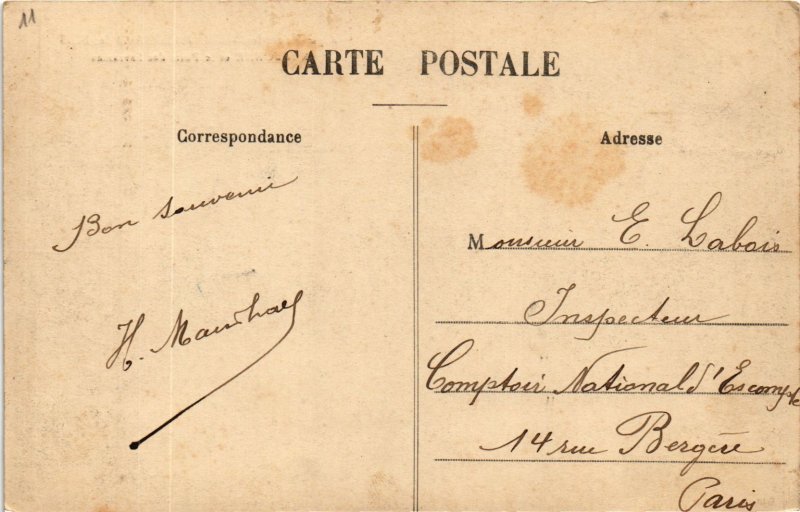 11
CARTE POSTALE
Correspondance
Adresse
Bon souvenir
H.
Monsieur E. Labois
Inspecteur
Comptoir National d'Escompte
14 rue Bergère
Paris